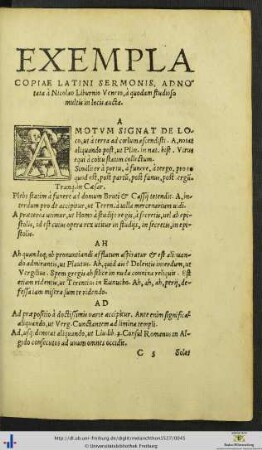 EXEMPLA
COPIAE LATINI SERMONIS, ADNO
tata à Nicolao Liburnio Veneto, à quodam studioso
multis in locis aucta.
A
A MOTVM SIGNAT DE LO-
co, ut à terra ad cœlum ascendisti. A, notat
aliquando post, ut Plin. in nat. hist. Vitu
equi à cœitu statim collectum.
Similiter à terra, à funere, à tergo, pro eo
quod est, post partū, post funus, post tergū.
Tranq. in Cæsar.
Plebs statim à funere ad domum Bruti & Cassij tetendit. A, in
terdum pro de accipitur, ut Teren. à uilla mercenarium uidi.
A præterea utimur, ut Homo à studijs regis, à secretis, uel ab epi-
stolis, id est cuius opera rex utitur in studijs, in secretis, in epi-
stolis.
AH
Ah quandoq; ob pronunciandi affluatum aspiratur & est ali-
admirantis, ut Plautus. Ah, quid ais? Dolentis interdum, ut
Vergilius. Spem gregis ah silice in nuda connixa reliquit. Est
etiam ridentis, ut Terentius in Eunucho. Ah, ah, ah, perij, de-
fessa iam misera sum te ridendo.
AD
Ad præpositio à doctissimis uarie accipitur. Ante enim significat
aliquando, ut Verg. Cunctantem ad limina templi.
Ad, usq; denotat aliquando, ut Liu. lib. 4. Cæsus Romanus in Al-
gido consecutus ad unum omnes occidit.
C 3
http://dl.ub.uni-freiburg.de/diglit/melanchthon1537/0045
© Universitätsbibliothek Freiburg